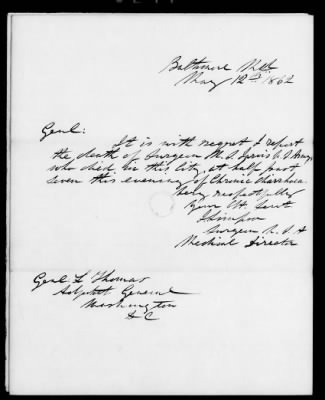 Baltimore Md
May 12th 1862
Genl:
It is with regret I report
the death of Surgeon U.S. Army
who died in this city, at half past
seven this evening of Chronic Diarrhoea
Very respectfully
Your Obt Servt
J Simpson
Surgeon U.S.A
Medical Director
Genl L Thomas
Adjutant General
Washington
D C